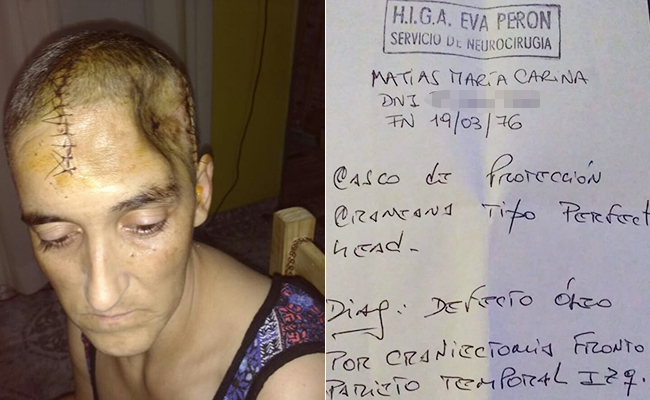 H.I.G.A. EVA PERON
SERVICIO DE NEUROCIRUGIA
MATIAS MARIA CARINA
DNI
FN 19/03/76
CASCO DE PROTECCIÓN
CRANEANA TIPO PERFECT
HEAD.
DIAG: DEFECTO ÓSEO
POR CRANIECTOMIA FRONTO
PARIETO TEMPORAL IZQ.